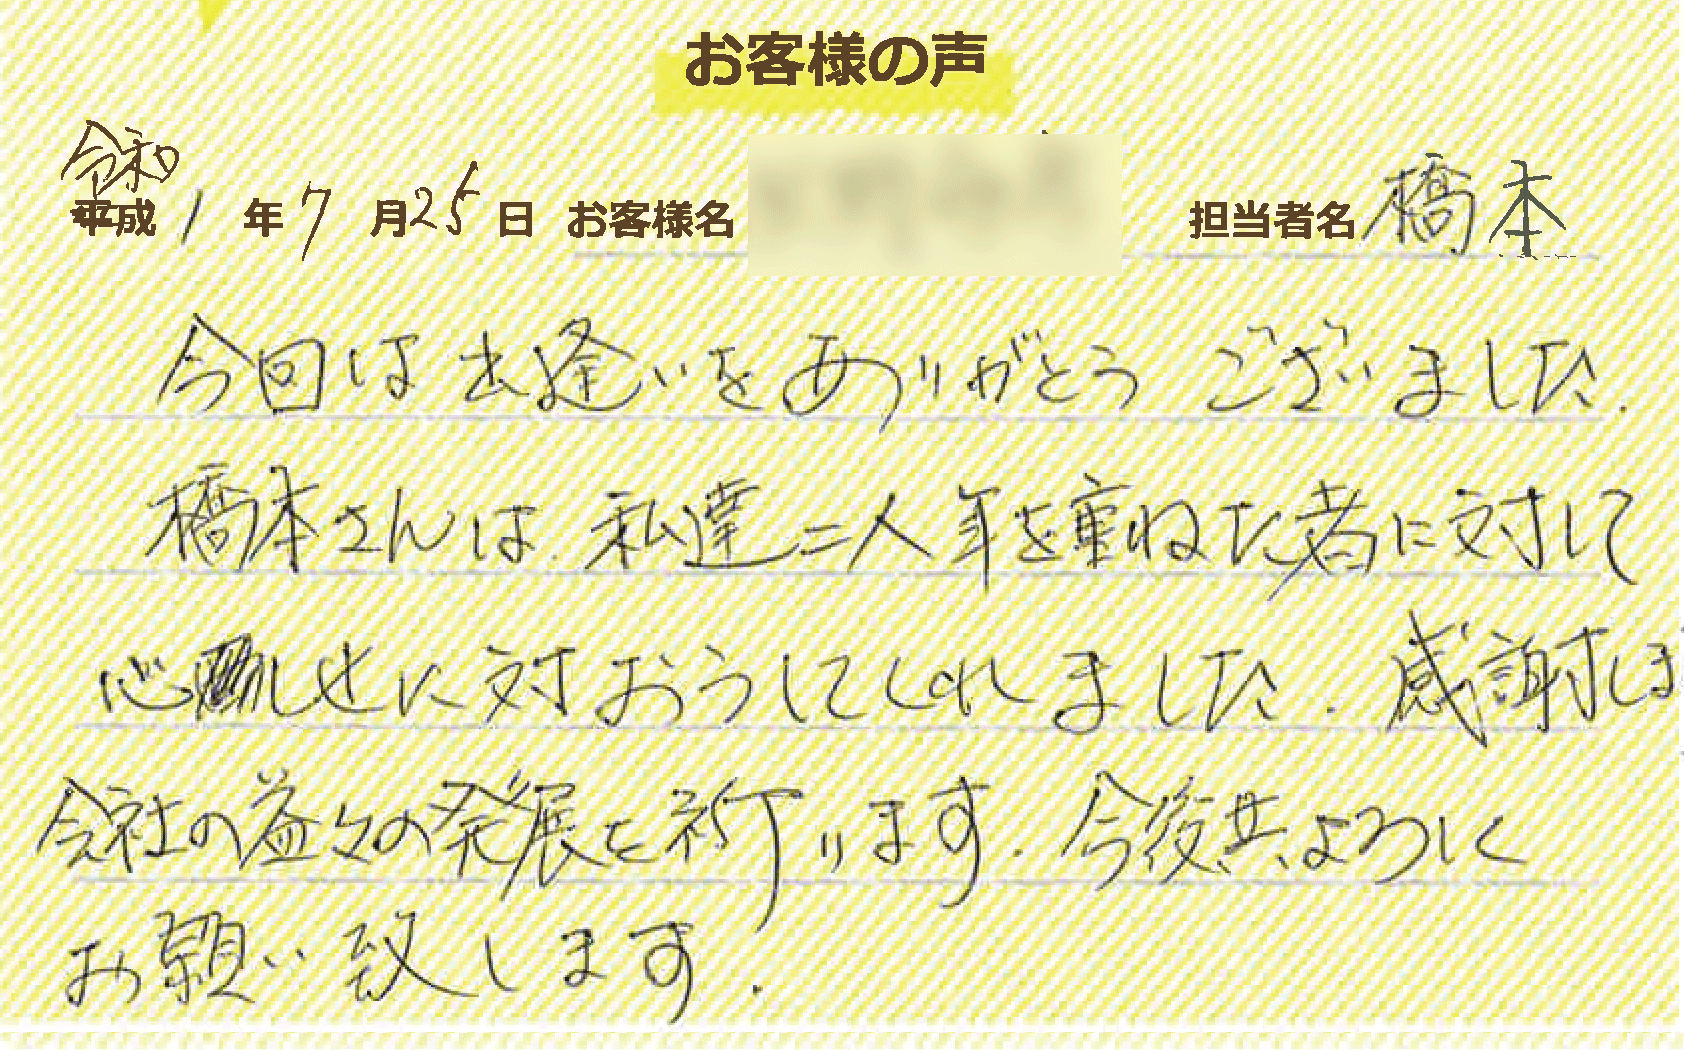 お客様の声
令和
平成 1 年 7 月 25 日 お客様名 担当者名 橋本
今回は出逢いをありがとうございました.
橋本さんは、私達二人年を重ねた者に対して
心しせに対おうしてくれました. 感謝しま
会社の益々の発展を祈ります. 今後共よろしく
お願い致します.